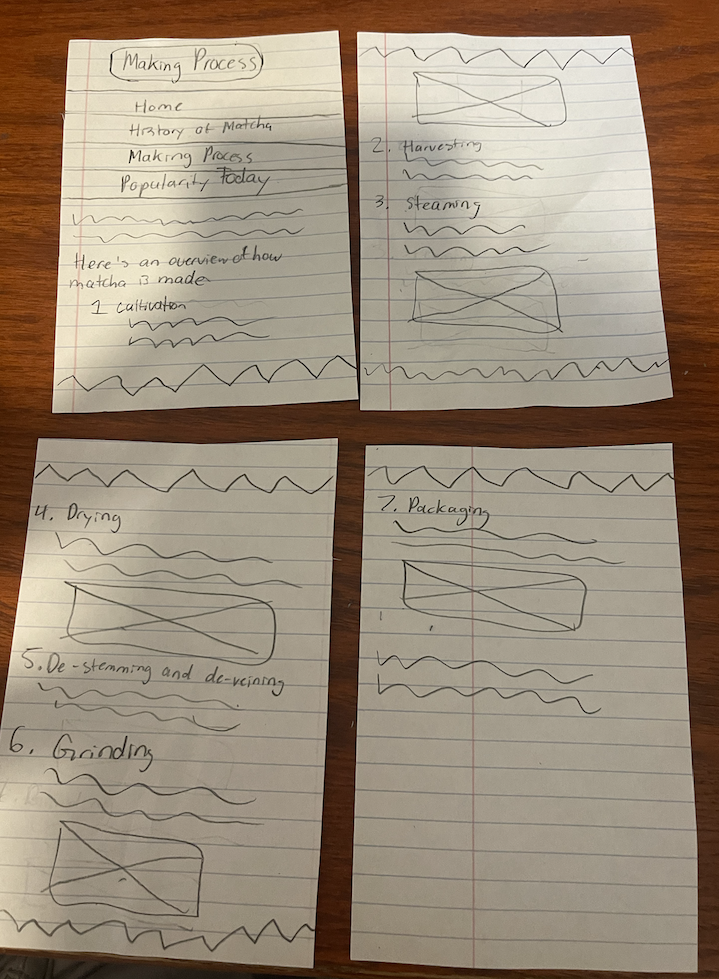 Making Process
Home
History of Matcha
Making Process
Popularity Today
Here's an overview of how
matcha is made
1 Cultivation
2. Harvesting
3. Steaming
4. Drying
5. De-stemming and de-veining
6. Grinding
7. Packaging